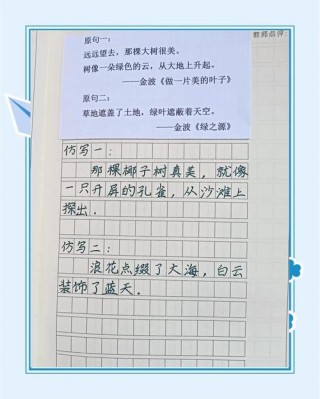 教师点评
原句一：
远远望去，那棵大树很美。
树像一朵绿色的云，从大地上升起。
——金波《做一片美的叶子》
原句二：
草地遮盖了土地，绿叶遮蔽着天空。
——金波《绿之源》
仿写一：
那棵椰子树真美，就像
一只开屏的孔雀，从沙滩上
探出．
仿写二：
浪花点缀了大海，白云
装饰了蓝天．